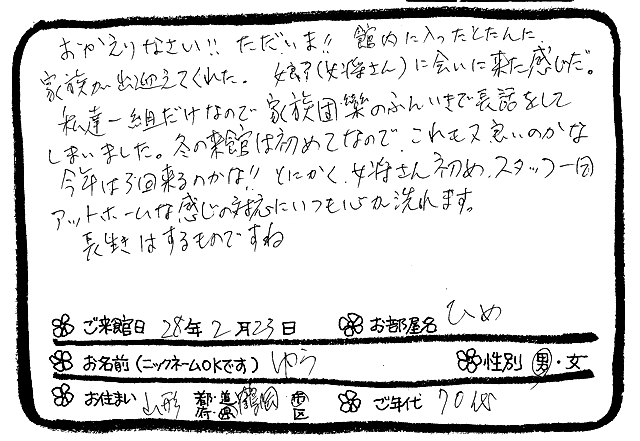 おかえりなさい!! ただいま!! 館内に入ったとたんに、
家族が出迎えてくれた。娘(女将さん)に会いに来た感じだ。
私達一組だけなので家族団欒のふんいきで長話をして
しまいました。冬の来館は初めてなので、これも又良いのかな
今年は3回来るのかな!! とにかく、女将さん初め、スタッフ一同
アットホームな感じの対応にいつも心が洗れます。
長生きはするものですね
ご来館日 28年2月23日 お部屋名 ひめ
お名前(ニックネームOKです) ゆう 性別 男・女
お住まい 山形 都・道・府・県 鶴岡 市・区 ご年代 70代